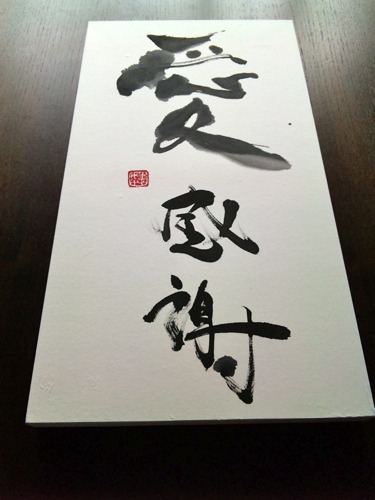 愛
感謝